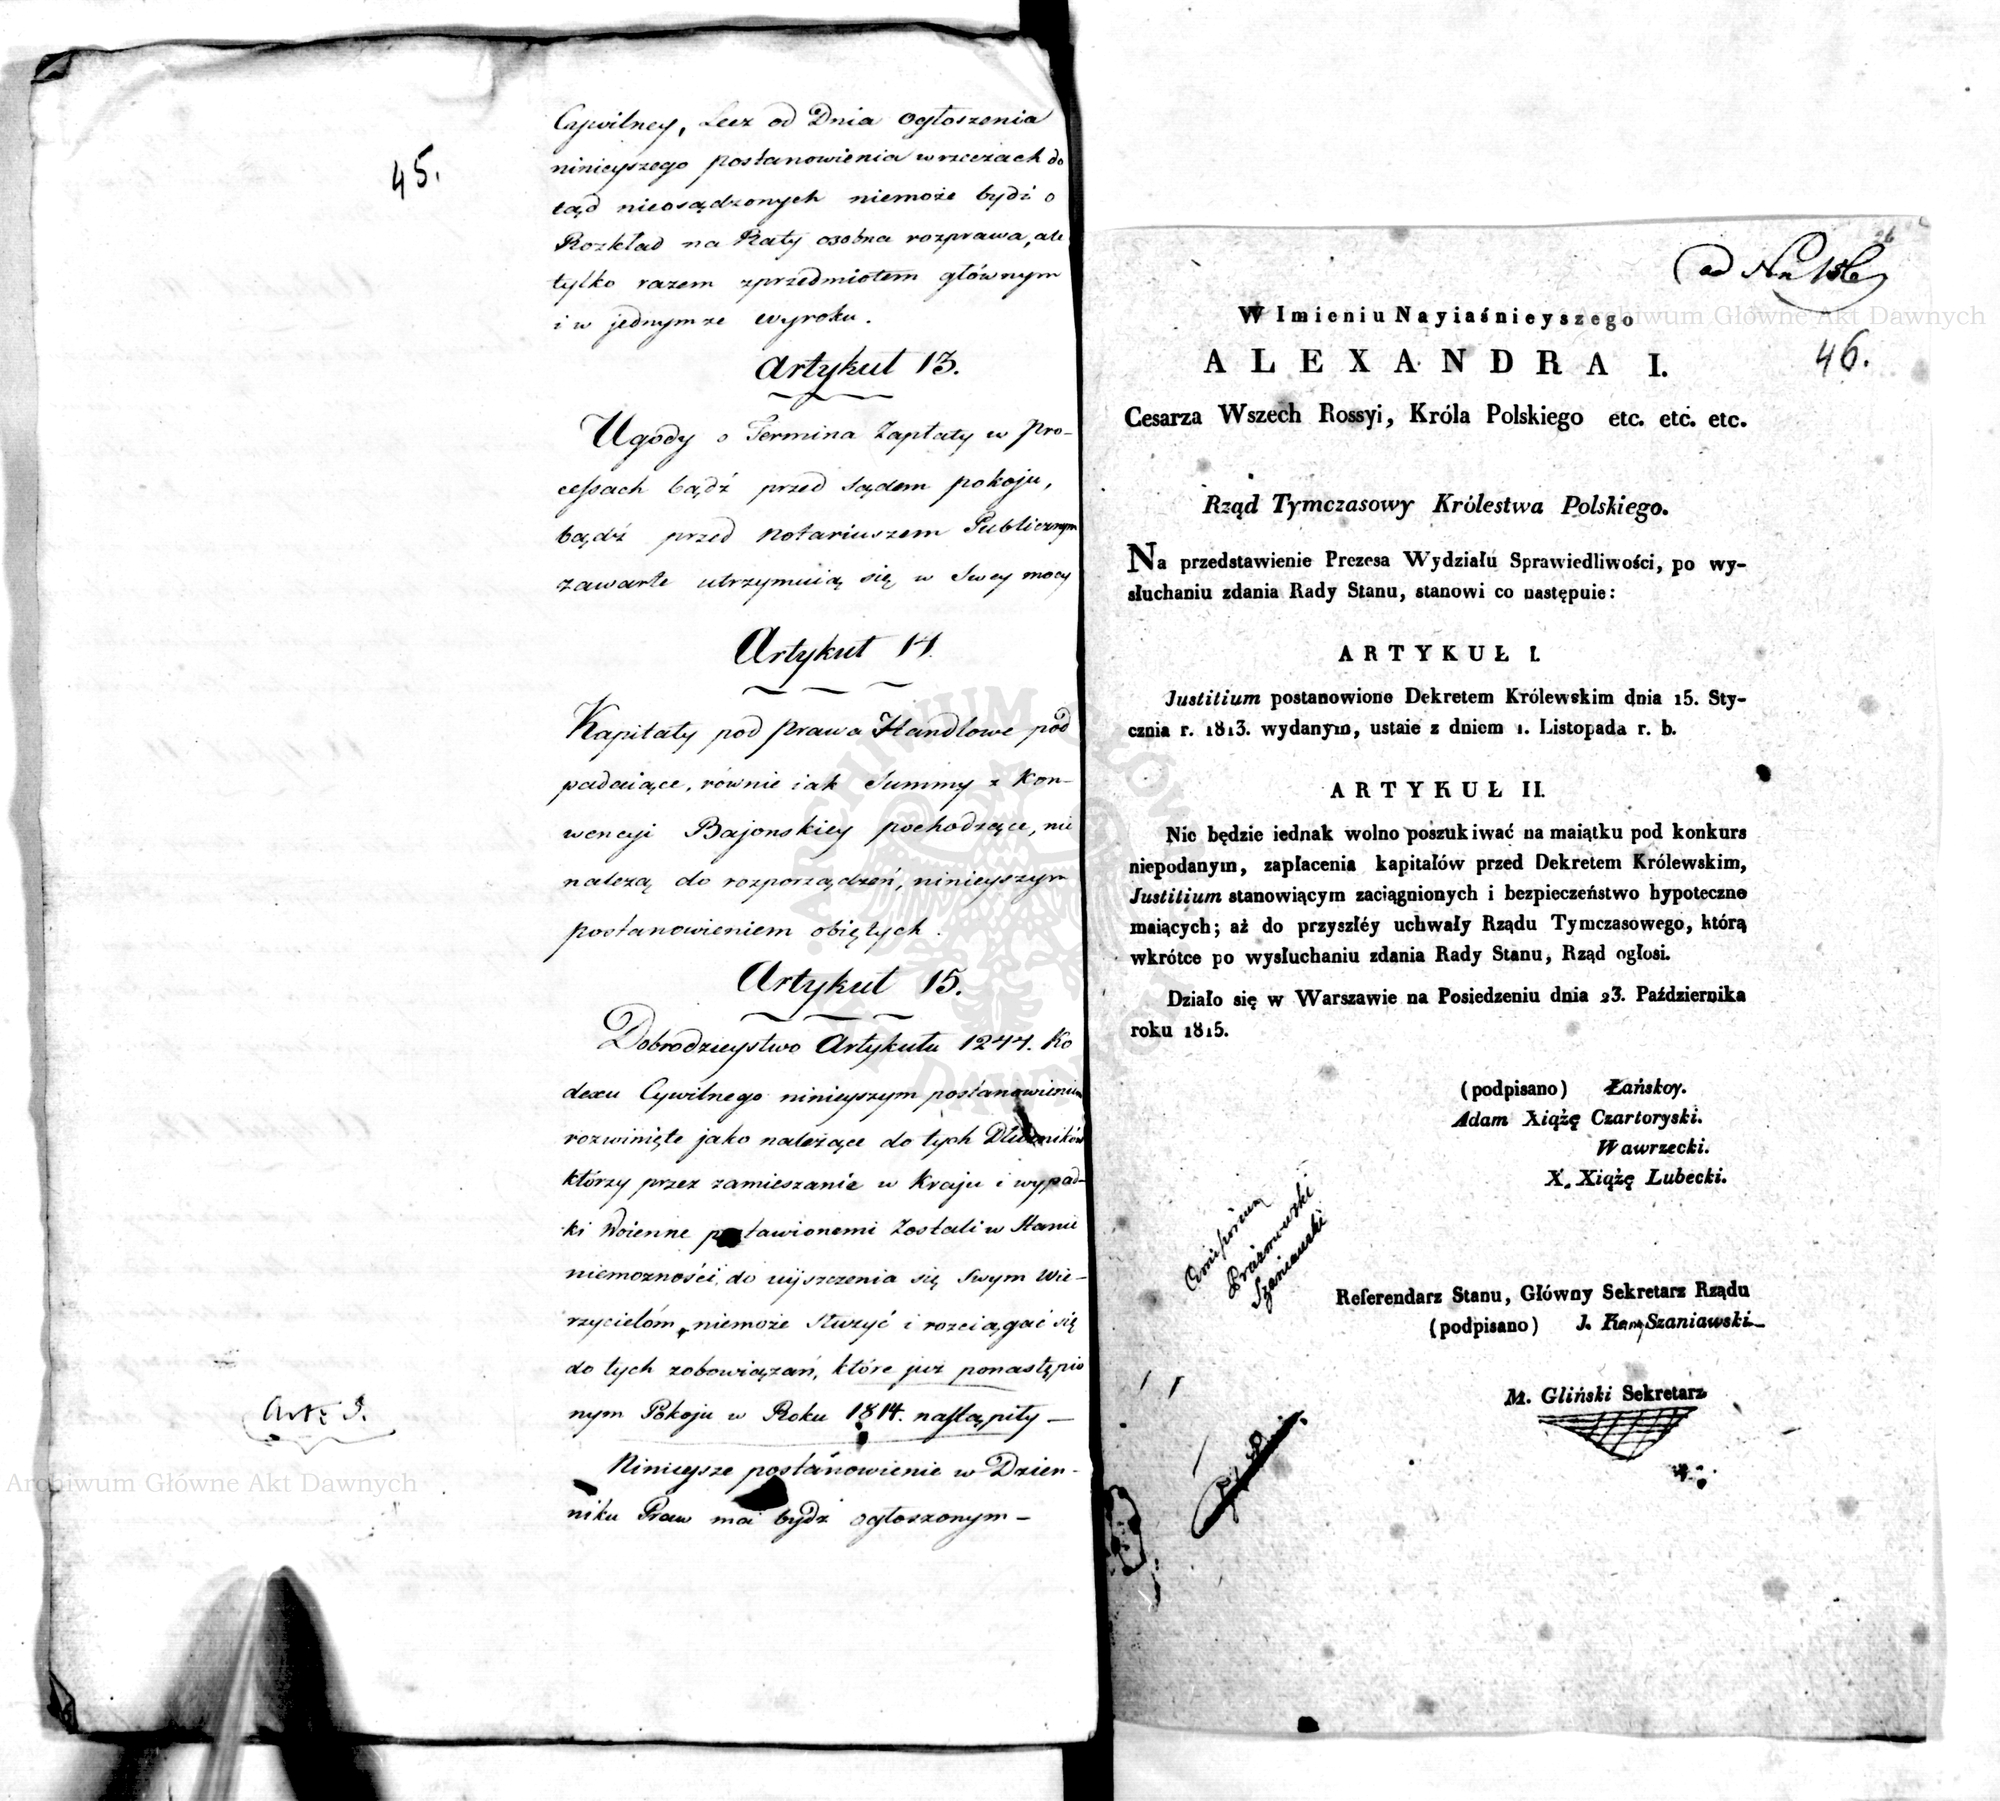 45.
Cywilney, Lecz od Dnia ogłoszenia
ninieyszego postanowienia w rzeczach do
tąd nieosądzonych niemoże bydź o
Rozkład na Raty osobna rozprawa, ale
tylko razem z przedmiotem głównym
i w jednymże wyroku.
Artykuł 13.
Ugody o Termina Zapłaty w Pro-
cessach bądź przed Sądem pokoju,
bądź przed Notariuszem Publicznym
zawarte utrzymuią się w Swey mocy
Artykuł 14.
Kapitały pod prawa Handlowe pod
padaiące, równie iak Summy z Kon-
wencyi Bajonskiey pochodzące, nie
należą do rozporządzeń, ninieyszym
postanowieniem obiętych.
Artykuł 15.
Dobrodzieystwo Artykułu 1244. Ko
dexu Cywilnego ninieyszym postanowieniem
rozwinięte jako należące do tych Dłużników
którzy przez zamieszanie w Kraju i wypad-
ki Woienne postawionemi Zostali w Stanie
niemożności, do uiszczenia się Swym Wie-
rzycielom, niemoże Służyć i rozciągać się
do tych zobowiązań, które już ponastępio
nym Pokoju w Roku 1814. nastąpiły —
Art: 3.
Ninieysze postanowienie w Dzien-
niku Praw ma bydź ogłoszonym —
Archiwum Główne Akt Dawnych
26
ad Nr
W Imieniu Nayiaśnieyszego
Archiwum Główne Akt Dawnych
46.
ALEXANDRA I.
Cesarza Wszech Rossyi, Króla Polskiego etc. etc. etc.
Rząd Tymczasowy Królestwa Polskiego.
Na przedstawienie Prezesa Wydziału Sprawiedliwości, po wy-
słuchaniu zdania Rady Stanu, stanowi co następuie:
ARTYKUŁ I.
Justitium postanowione Dekretem Królewskim dnia 15. Sty-
cznia r. 1813. wydanym, ustaie z dniem 1. Listopada r. b.
ARTYKUŁ II.
Nie będzie iednak wolno poszukiwać na maiątku pod konkurs
niepodanym, zapłacenia kapitałów przed Dekretem Królewskim,
Justitium stanowiącym zaciągnionych i bezpieczeństwo hypoteczne
maiących; aż do przyszłéy uchwały Rządu Tymczasowego, którą
wkrótce po wysłuchaniu zdania Rady Stanu, Rząd ogłosi.
Działo się w Warszawie na Posiedzeniu dnia 23. Października
roku 1815.
(podpisano) Łańskoy.
Adam Xiążę Czartoryski.
Wawrzecki.
X. Xiążę Lubecki.
Prażmowski
Szaniawski
Referendarz Stanu, Główny Sekretarz Rządu
(podpisano) J. Kan. Szaniawski
M. Gliński Sekretarz